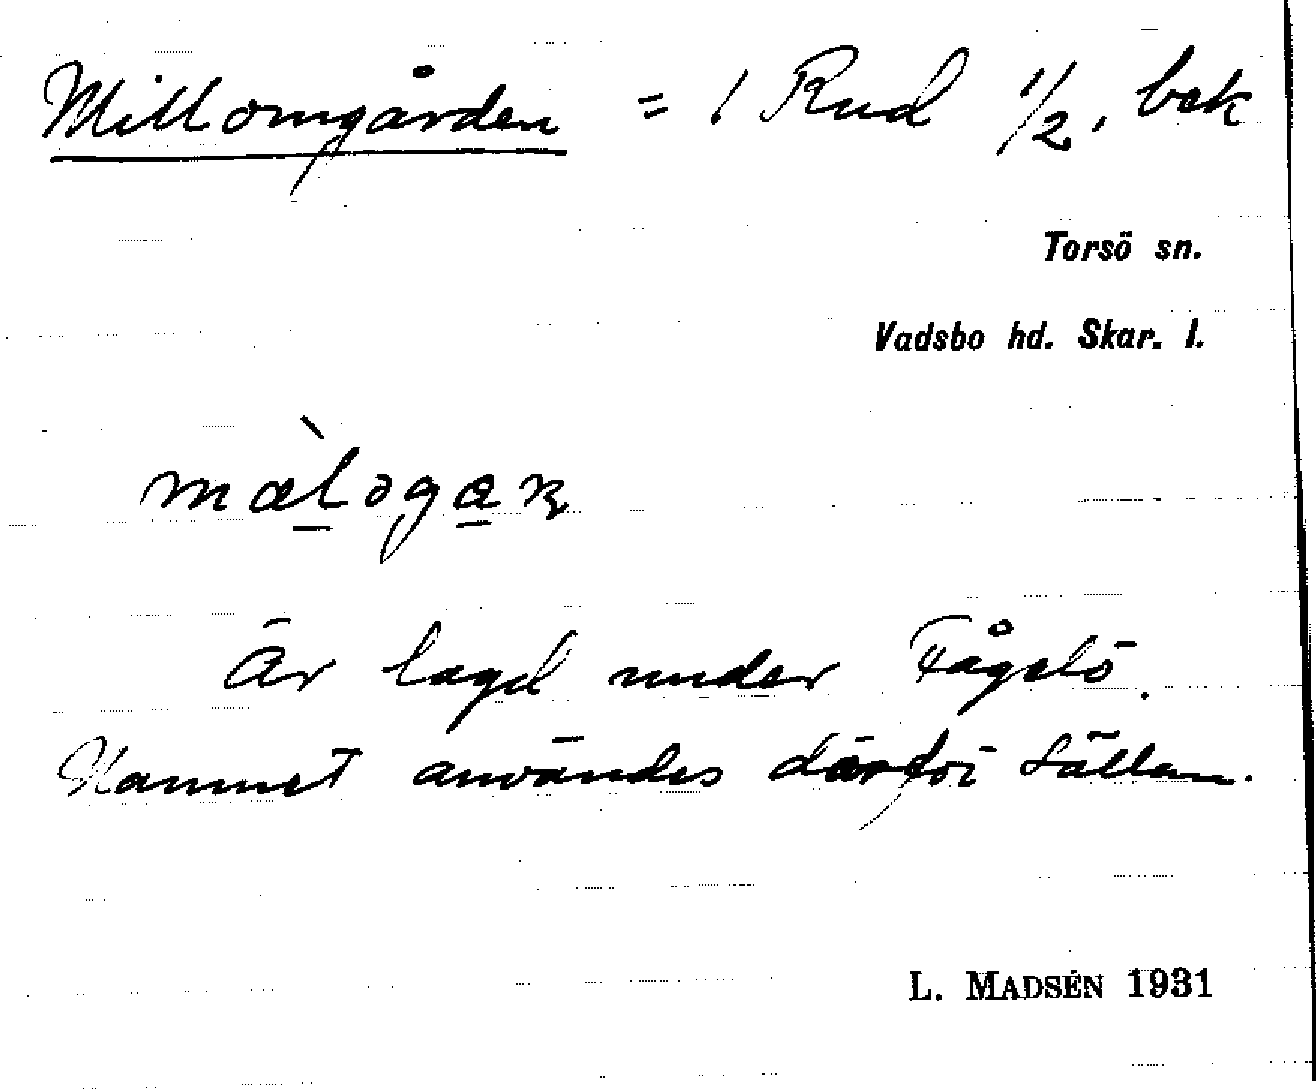 Millomgården = 1 Rud 1/2, bek
Torsö sn.
Vadsbo hd. Skar. l.
Är lagd under Fågelö.
Namnet användes därför sällan.
L. MADSÉN 1931